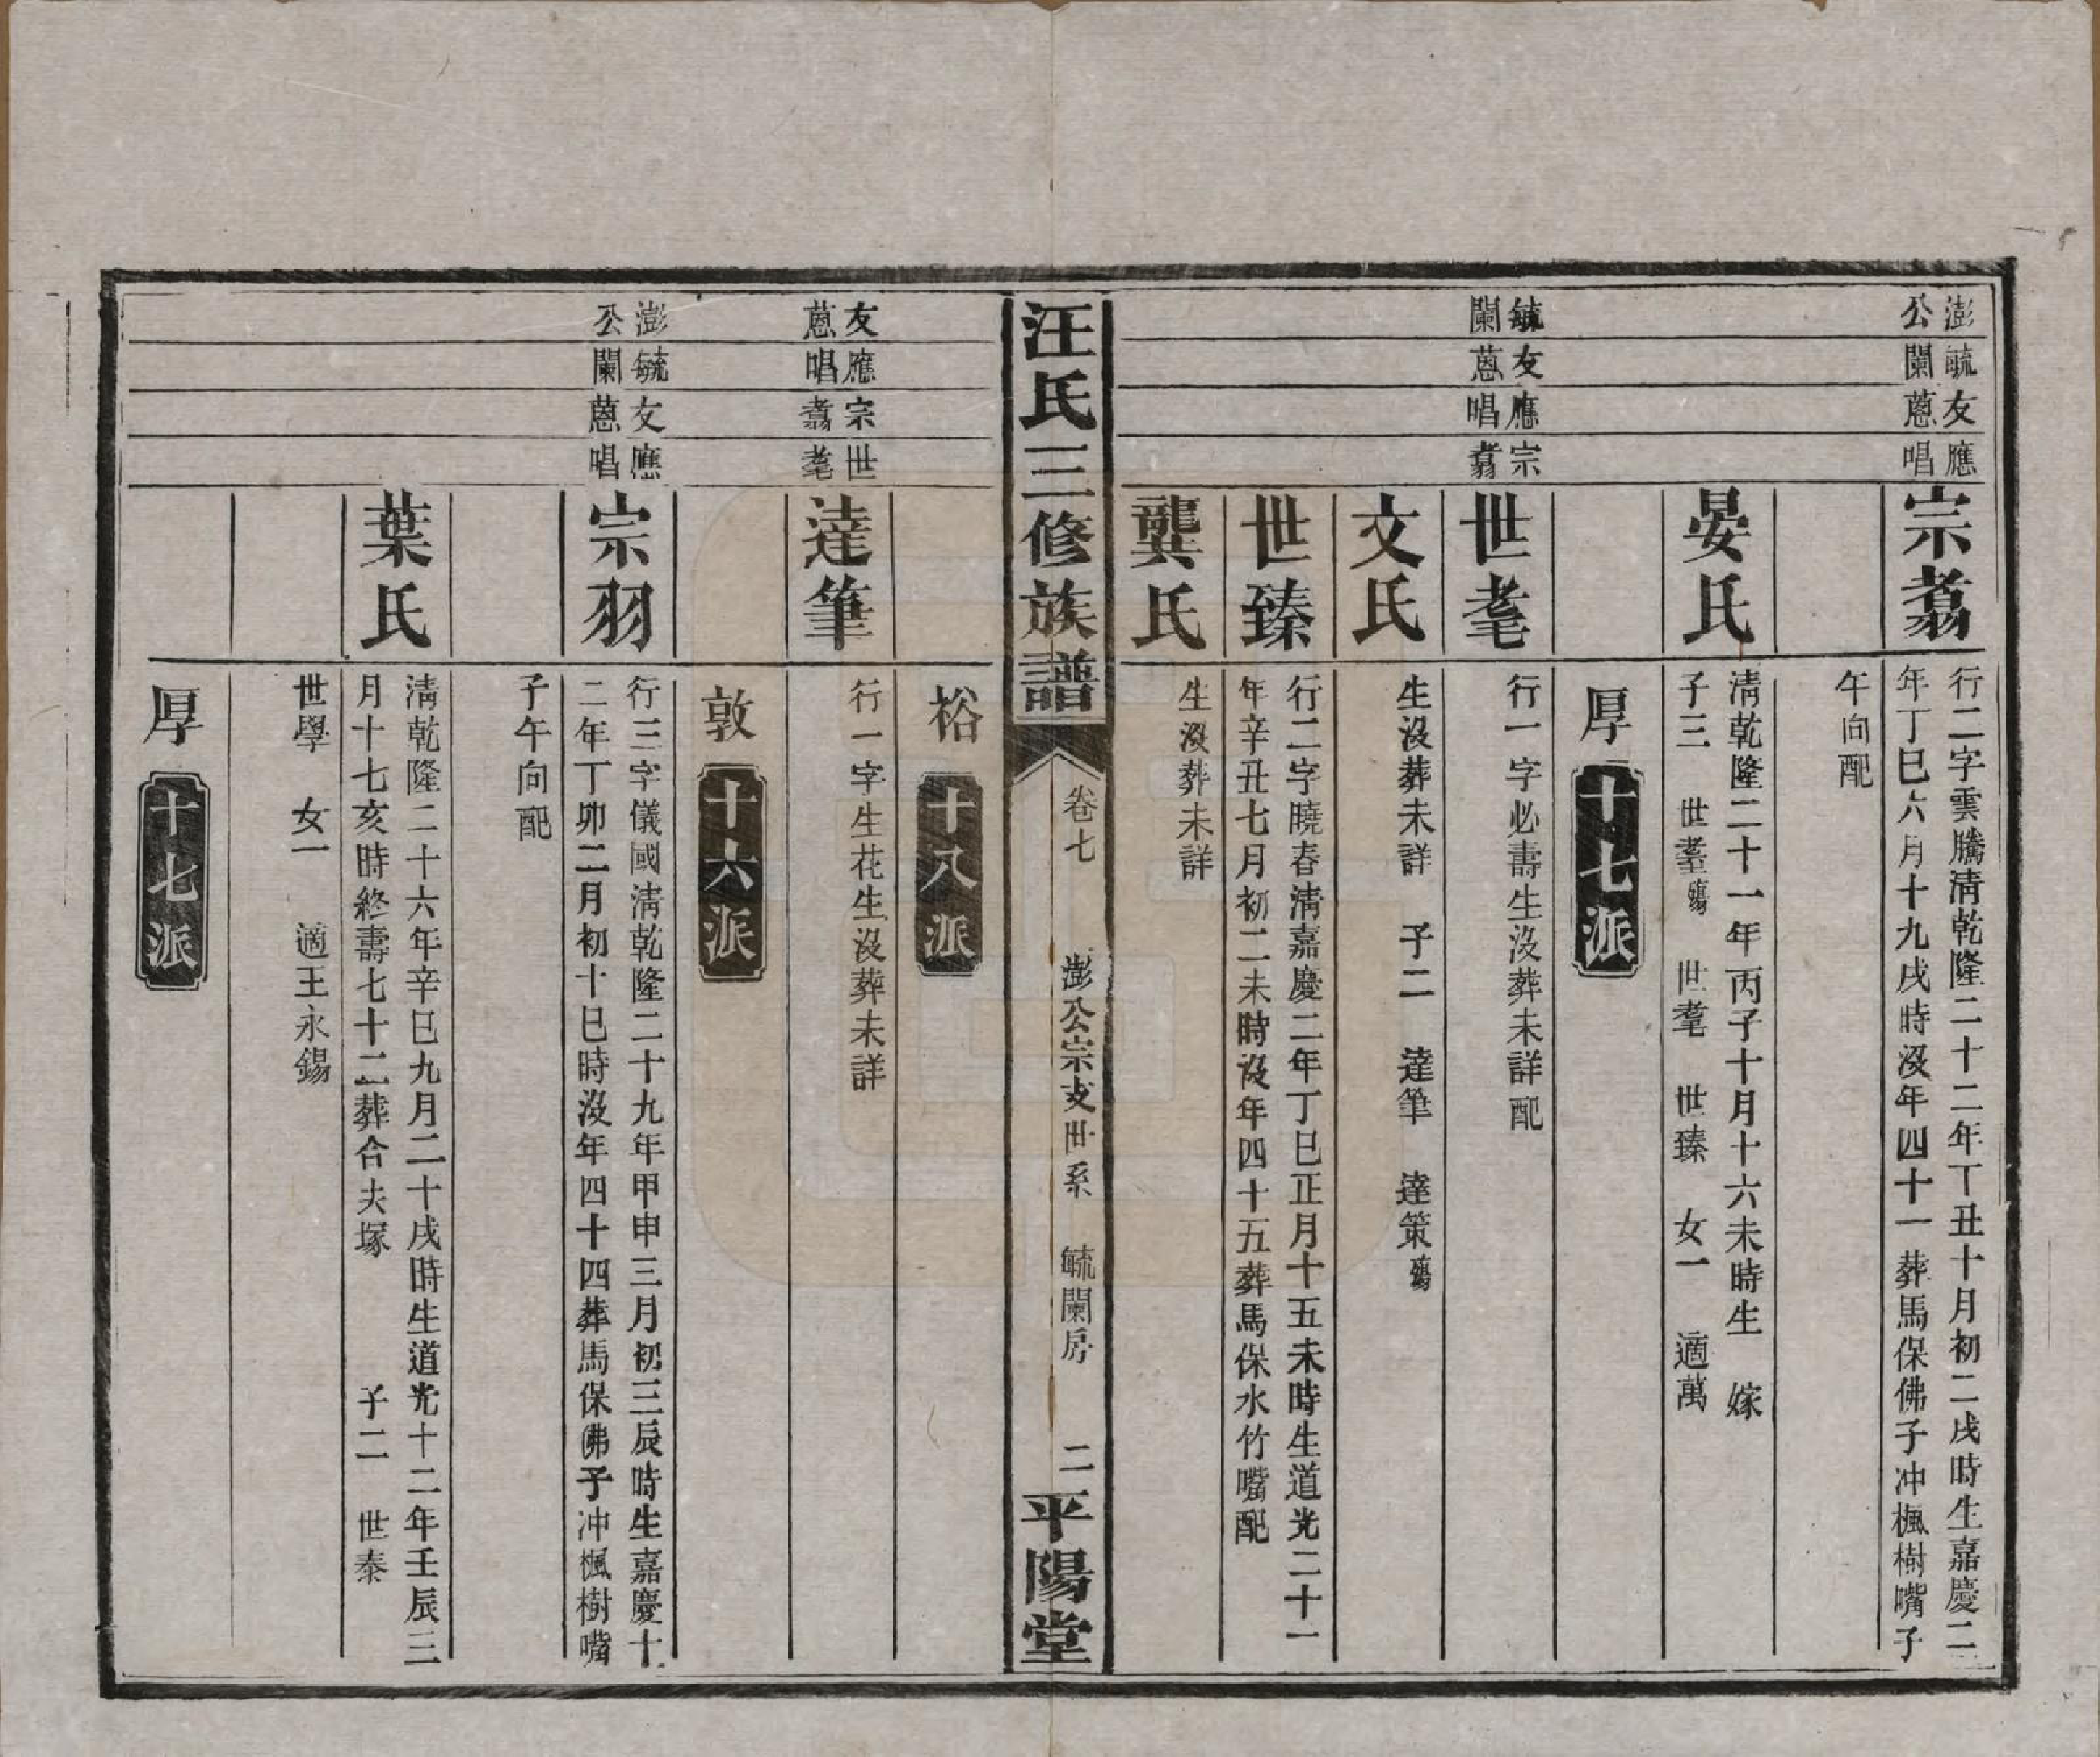 澎公
毓闌
友蒽
應唱
宗翥
行二字雲騰淸乾隆二十二年丁丑十月初二戌時生嘉慶二
年丁巳六月十九戌時沒年四十一葬馬保佛子冲楓樹嘴子
午向配
晏氏
淸乾隆二十一年丙子十月十六未時生 嫁
子三 世耋殤 世耄 世臻 女一 適萬
厚 十七派
毓闌
友蒽
應唱
宗翥
世耄
行一字必壽生沒葬未詳配
文氏
生沒葬未詳 子二 達筆 達策殤
世臻
行二字曉春淸嘉慶二年丁巳正月十五未時生道光二十一
年辛丑七月初二未時沒年四十五葬馬保水竹嘴配
龔氏
生沒葬未詳
汪氏三修族譜
卷七 澎公宗支世系 毓闌房 二
平陽堂
裕 十八派
友蒽
應唱
宗翥
世耄
達筆
行一字生花生沒葬未詳
敦 十六派
澎公
毓闌
友蒽
應唱
宗羽
行三字儀國淸乾隆二十九年甲申三月初三辰時生嘉慶十
二年丁卯二月初十巳時沒年四十四葬馬保佛子冲楓樹嘴
子午向配
葉氏
淸乾隆二十六年辛巳九月二十戌時生道光十二年壬辰三
月十七亥時終壽七十二葬合夫塚 子二 世泰
世學 女一 適王永錫
厚 十七派